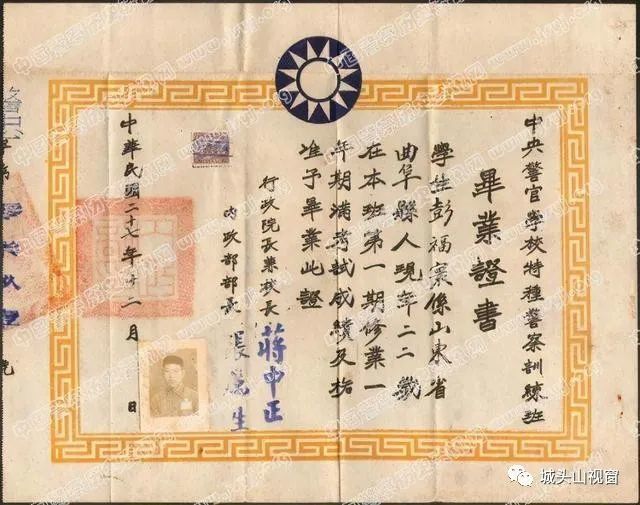 中央警官學校特種警察訓練班
畢業證書
學生彭福寰係山東省
曲阜縣人現年二二歲
在本班第一期修業一
年期滿考試成績及格
准予畢業此證
行政院長兼校長 蔣中正
內政部部長 張萬生
中華民國二十七年十二月 日
城头山视窗